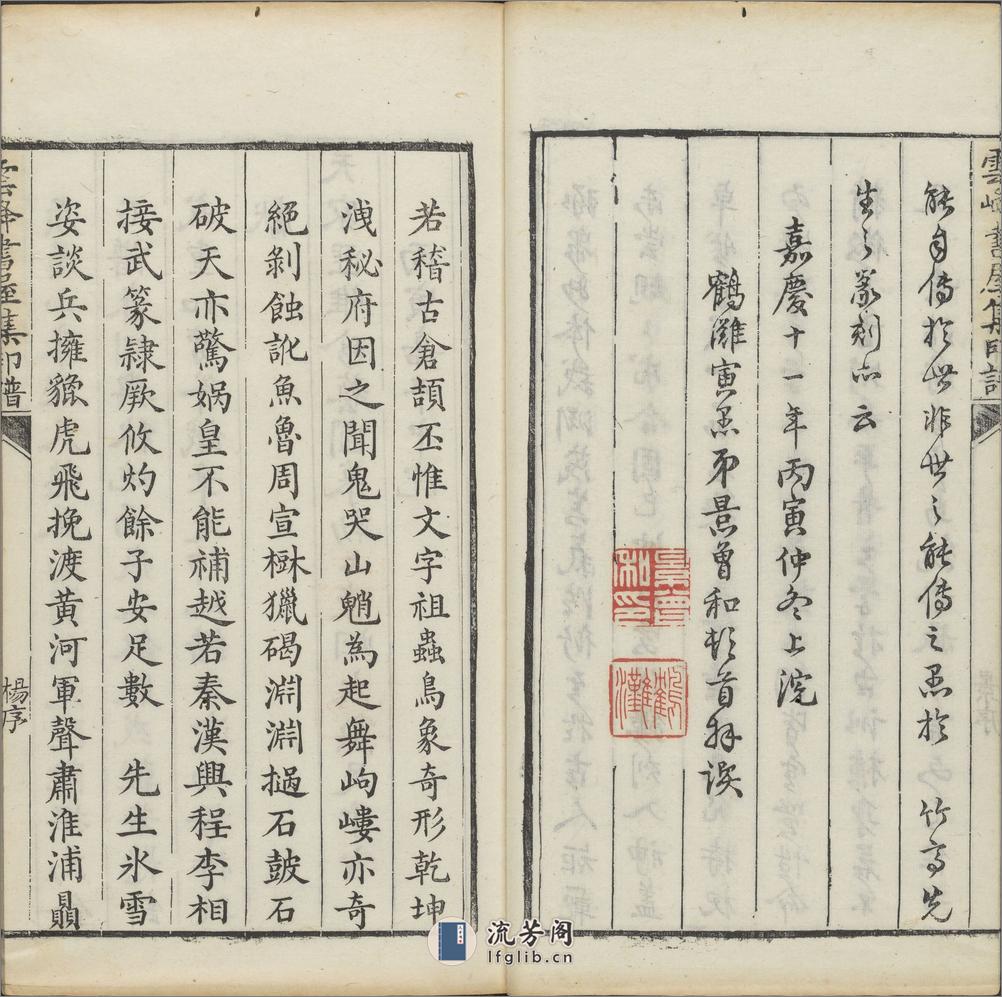 能自傳於世非世之能傳之焉於 竹亭先
生之篆刻亦云
嘉慶十一年丙寅仲冬上浣
鶴灘寅愚弟景曾和頓首拜譔
景曾
和印
鶴
灘
若稽古倉頡丕惟文字祖蟲鳥象奇形乾坤
洩秘府因之聞鬼哭山魈為起舞岣嶁亦奇
絕剝蝕訛魚魯周宣楙獵碣淵淵撾石皷石
破天亦驚媧皇不能補越若秦漢興程李相
接武篆隷厥攸灼餘子安足數 先生氷雪
姿談兵擁貔虎飛挽渡黃河軍聲肅淮浦贔
雲峰書屋集印譜
楊序
流芳阁
lfglib.cn